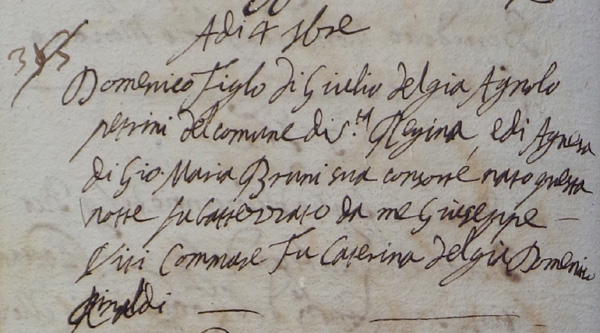 Adi 4 9bre
385
Domenico figlo di Giulio del gia Agnolo
petrini del comune di S.ta Regina, e di Agnesa
di Gio. Maria Bruni sua consorte nato questa
notte fu battezzato da me Giuseppe
Viti Commare fu Caterina del gia Domenico
Rinaldi